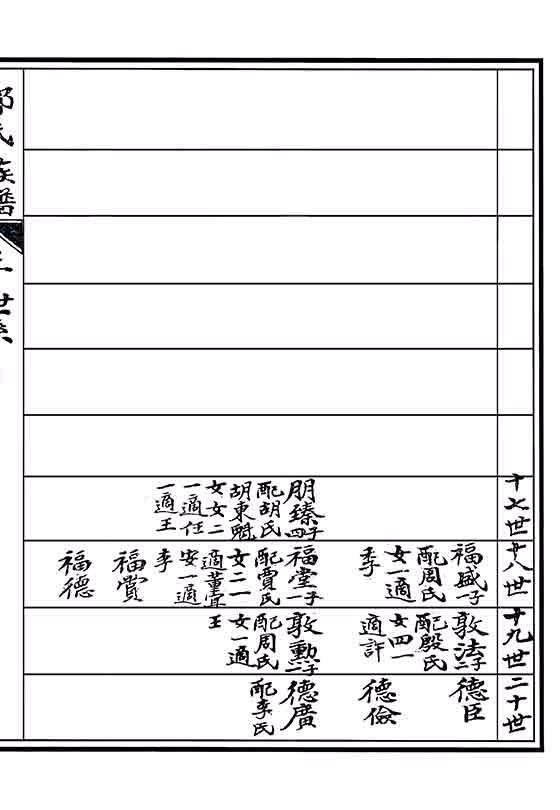 十七世
朋臻四子
配胡氏
胡東魁
女女二
一適任
一適王
十八世
福盛一子
配周氏
女一適
季
福堂一子
配賈氏
女二一
適董壹
安一適
李
福賞
福德
十九世
敦法二子
配殷氏
女四一
適許
敦勲二子
配周氏
女一適
王
二十世
德臣
德儉
德廣
配李氏
氏族譜
世系